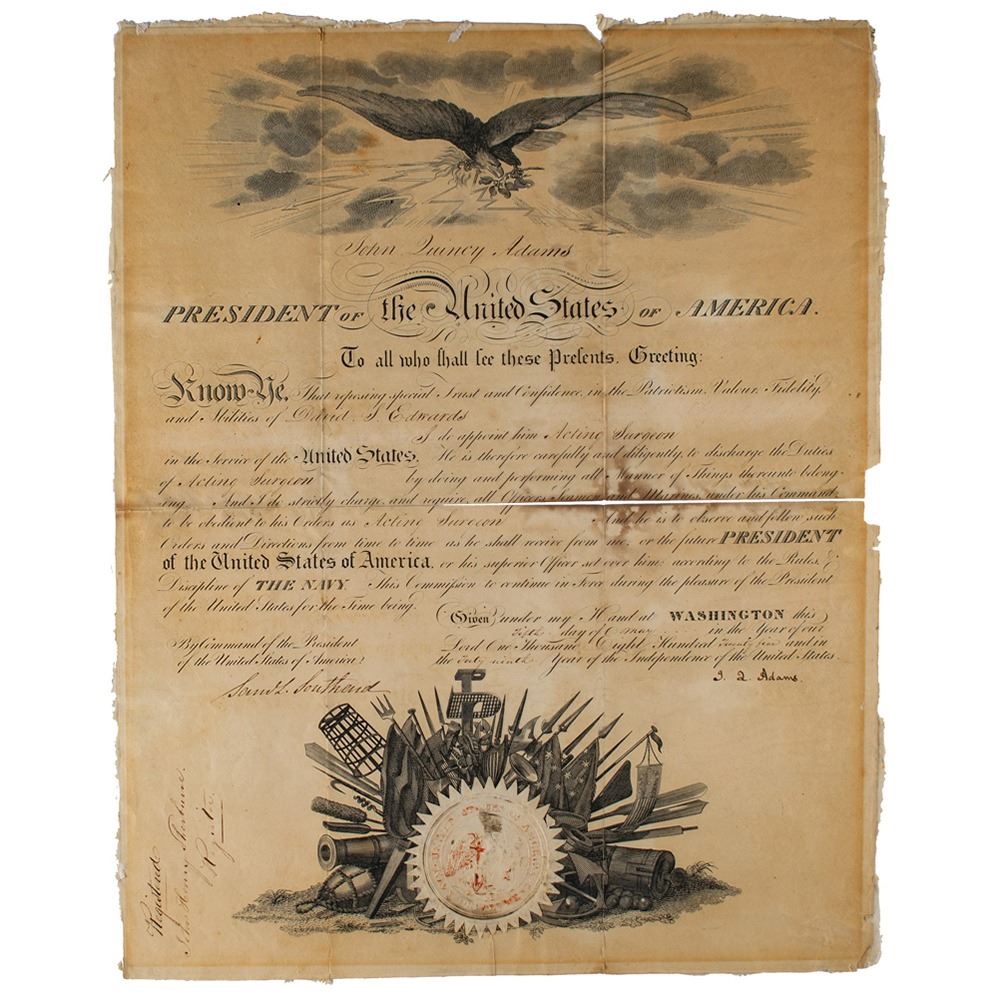 John Quincy Adams
PRESIDENT OF the United States OF AMERICA.
To all who shall see these Presents, Greeting:
Know Ye, That reposing special Trust and Confidence in the Patriotism, Valour, Fidelity,
and Abilities of David S. Edwards
I do appoint him Acting Surgeon
in the Service of the United States. He is therefore carefully and diligently to discharge the Duties
of Acting Surgeon by doing and performing all Manner of Things thereunto belong-
ing. And I do strictly charge, and require, all Officers, Seamen and Marines, under his Command,
to be obedient to his Orders as Acting Surgeon And he is to observe and follow such
Orders and Directions from time to time as he shall receive from me, or the future PRESIDENT
of the United States of America, or his superior Officer set over him, according to the Rules, &
Discipline of THE NAVY. This Commission to continue in Force during the pleasure of the President
of the United States for the Time being.
Given under my Hand at WASHINGTON this
day of May in the Year of our
Lord One Thousand Eight Hundred Twenty five and in
the Forty ninth Year of the Independence of the United States.
By Command of the President
of the United States of America
J. Q. Adams.
Saml. L. Southard
Registered